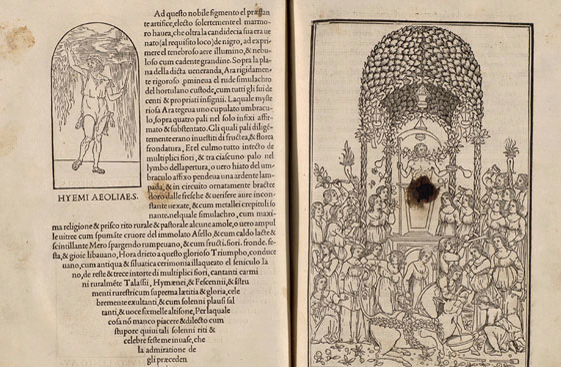 Ad questo nobile figmento el præstan
te artifice, electo solertemente el marmo-
ro hauea, che oltra la candidecia sua era ue
nato (al requisito loco) de nigro, ad expri-
mere el tenebroso aere illumino, & nebu-
loso cum cadente grandine. Sopra la pla-
na della dicta ueneranda, Ara rigidamen-
te rigoroso promineua el rude simulachro
del hortulano custode, cum tutti gli sui de
centi & propriati insignii. Laquale myste
riosa Ara tegeua uno cupulato umbracu-
lo, sopra quatro pali nel solo infixi affir-
mato & substentato. Gli quali pali diligē-
temente erano inuestiti di fructea, & florea
frondatura, Et el culmo tutto intecto de
multiplici fiori, & tra ciascuno palo nel
lymbo dellapertura, o uero hiato del um-
braculo affixo pendeua una ardente lam-
pada, & in circuito ornamente bractee
doro dalle fresche & uerifere aure incon-
stante uexate, & cum metallei crepituli so
nante, nel quale simulachro, cum maxi-
HYEMI AEOLIAE S.
ma religione & prisco rito rurale & pastorale alcune amole, o uero ampul
le uitree cum spumāte cruore del immolato Asello, & cum caldo lacte &
scintillante Mero spargendo rumpeuano, & cum fructi, fiori, fronde, fe-
sta, & gioie libauano, Hora drieto a questo glorioso Triumpho, conduce
uano, cum antiqua & siluatica cerimonia illaqueato el seniculo Ia
no, de reste & trece intorte di multiplici fiori, cantanti carmi
ni ruralmēte Talassii, Hymænei, & Fescennii, & istru
menti rurestri cum suprema lætitia & gloria, cele
bremente exultanti, & cum solenni plausi sal
tanti, & uoce fœmelle altisone, Per laquale
cosa nō manco piacere & dilecto cum
stupore quiui tali solenni riti &
celebre feste me inuase, che
la admiratione de
gli præceden